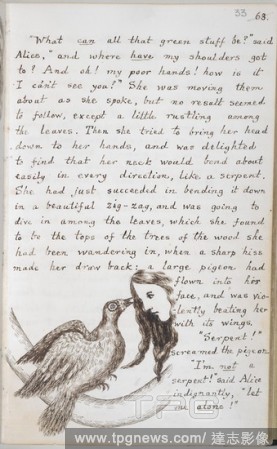 53 63.
"What can all that green stuff be?" said
Alice, "and where have my shoulders got
to? And oh! my poor hands! how is it
I ca'n't see you?" She was moving them
about as she spoke, but no result seemed
to follow, except a little rustling among
the leaves. Then she tried to bring her head
down to her hands, and was delighted
to find that her neck would bend about
easily in every direction, like a serpent.
She had just succeeded in bending it down
in a beautiful zig-zag, and was going to
dive in among the leaves, which she found
to be the tops of the trees of the wood she
had been wandering in, when a sharp hiss
made her draw back: a large pigeon had
flown into her
face, and was vio-
lently beating her
with its wings.
"Serpent!"
screamed the pigeon.
"I'm not a
serpent!" said Alice
indignantly, "let
me alone!"
TPG
www.tpgnews.com/ 達志影像